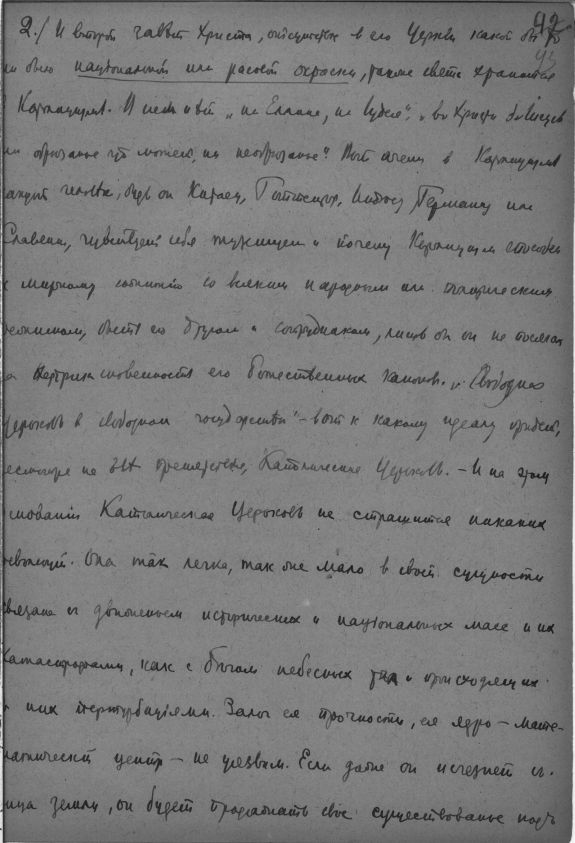 92
2./ И второй завет Христа, отсутствие в его Церкви какой бы то
ни было национальной или расовой окраски, также свято хранится
в Католицизме. И нем нѣт „ни Еллина, ни Іудея“, „во Христѣ Іисусе
ни обрезание не может, ни необрезание“. Вот почему в Католицизме
каждый человек, будь он Китаец, Готтентот, Индус, Германец или
Славянин, чувствует себя
и почему Католицизм способен
к мирному со всяким народным или этническим
быть его другом и сотрудником, лишь бы он не посягал
на его божественных канонов. „Свободная
Церковь в свободном государстве“ – вот к какому идеалу
несмотря на все препятствия, Католическая Церковь. – И на этом
основании Католическая Церковь не страшится никаких
революций. Она так легко, так же мало в своей сущности
связана с движеньем исторических и национальных масс и их
катастрофами, как с бытом небесных тел и происходящих
в них пертурбаціями. Залог ея прочности, ея ядро – мате-
матический центр – не уязвим. Если даже он исчезнет с
лица земли, он будет продолжать свое существованье над